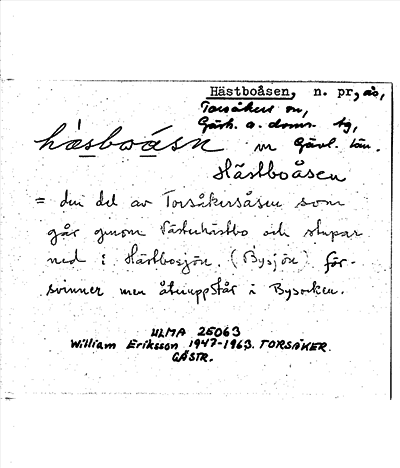 Hästboåsen, n. pr, ås,
Torsåkers sn,
Gästr. ö. doms. tg,
Gävl. län.
hàsboásn m
Hästboåsen
= den del av Torsåkersåsen som
går genom Västerhästbo och stupar
ned i Hästbosjön. (Bysjön) för-
svinner men återuppstår i Bysocken.
ULMA 25063
William Eriksson 1947-1963. TORSÅKER.
GÄSTR.